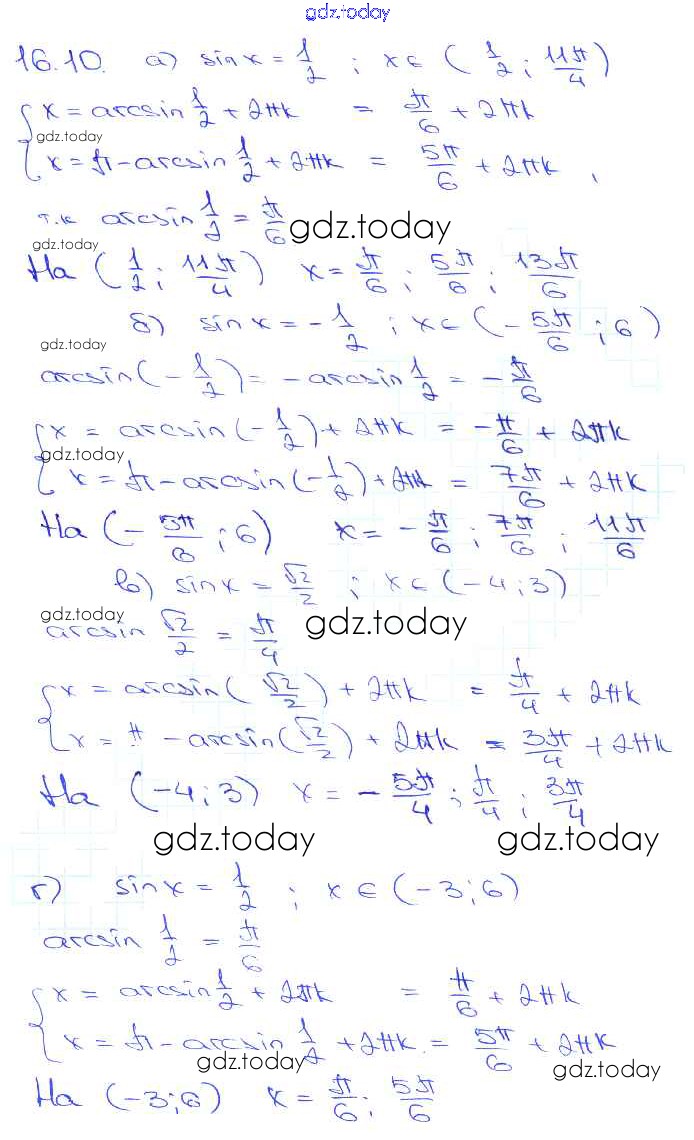 gdz.today
16.10. а) sin x = 1/2 ; x ∈ (1/2 ; 11π/4)
x = arcsin 1/2 + 2πk = π/6 + 2πk
gdz.today
x = π - arcsin 1/2 + 2πk = 5π/6 + 2πk ,
т.к arcsin 1/2 = π/6
gdz.today
gdz.today
На (1/2 ; 11π/4) x = π/6 ; 5π/6 ; 13π/6
б) sin x = - 1/2 ; x ∈ (- 5π/6 ; 6)
gdz.today
arcsin(- 1/2) = - arcsin 1/2 = - π/6
x = arcsin(- 1/2) + 2πk = - π/6 + 2πk
gdz.today
x = π - arcsin(- 1/2) + 2πk = 7π/6 + 2πk
На (- 5π/6 ; 6) x = - π/6 ; 7π/6 ; 11π/6
в) sin x = √2/2 ; x ∈ (-4 ; 3)
gdz.today
gdz.today
arcsin √2/2 = π/4
x = arcsin(√2/2) + 2πk = π/4 + 2πk
x = π - arcsin(√2/2) + 2πk = 3π/4 + 2πk
На (-4 ; 3) x = - 5π/4 ; π/4 ; 3π/4
gdz.today
gdz.today
г) sin x = 1/2 ; x ∈ (-3 ; 6)
arcsin 1/2 = π/6
x = arcsin 1/2 + 2πk = π/6 + 2πk
x = π - arcsin 1/2 + 2πk = 5π/6 + 2πk
gdz.today
gdz.today
На (-3 ; 6) x = π/6 ; 5π/6